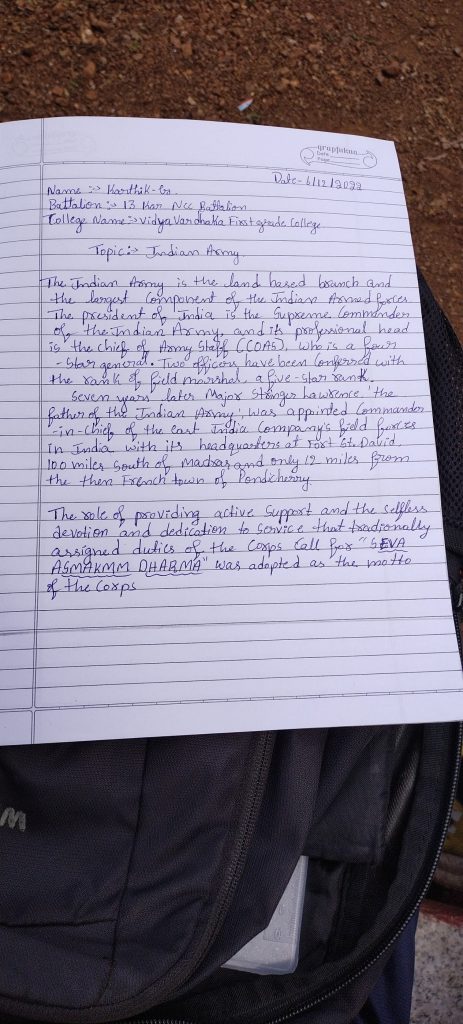 Date- 6/12/2022
Name :-> Karthik-Gr.
Battalion :-> 13 Kar Ncc Battalion
College Name :-> Vidya Vardhaka First grade College.
Topic :-> Indian Army.
The Indian Army is the land based branch and
the largest component of the Indian Armed forces
The president of India is the Supreme Commander
of the Indian Army, and its professional head
is the chief of Army Staff (COAS), who is a four
-star general. Two officers have been conferred with
the rank of field marshal, a five-star rank.
Seven years later Major Stringer Lawrence, 'the
father of the Indian Army', was appointed Commander
-in-chief of the east India Company's field forces
in India with its headquarters at Fort St. David
100 miles South of Madras and only 12 miles from
the then French town of Pondicherry
The role of providing active Support and the selfless
devotion and dedication to Service that tradionally
assigned duties of the Corps Call for "SEVA
ASMAKMM DHARMA" was adopted as the motto
of the Corps